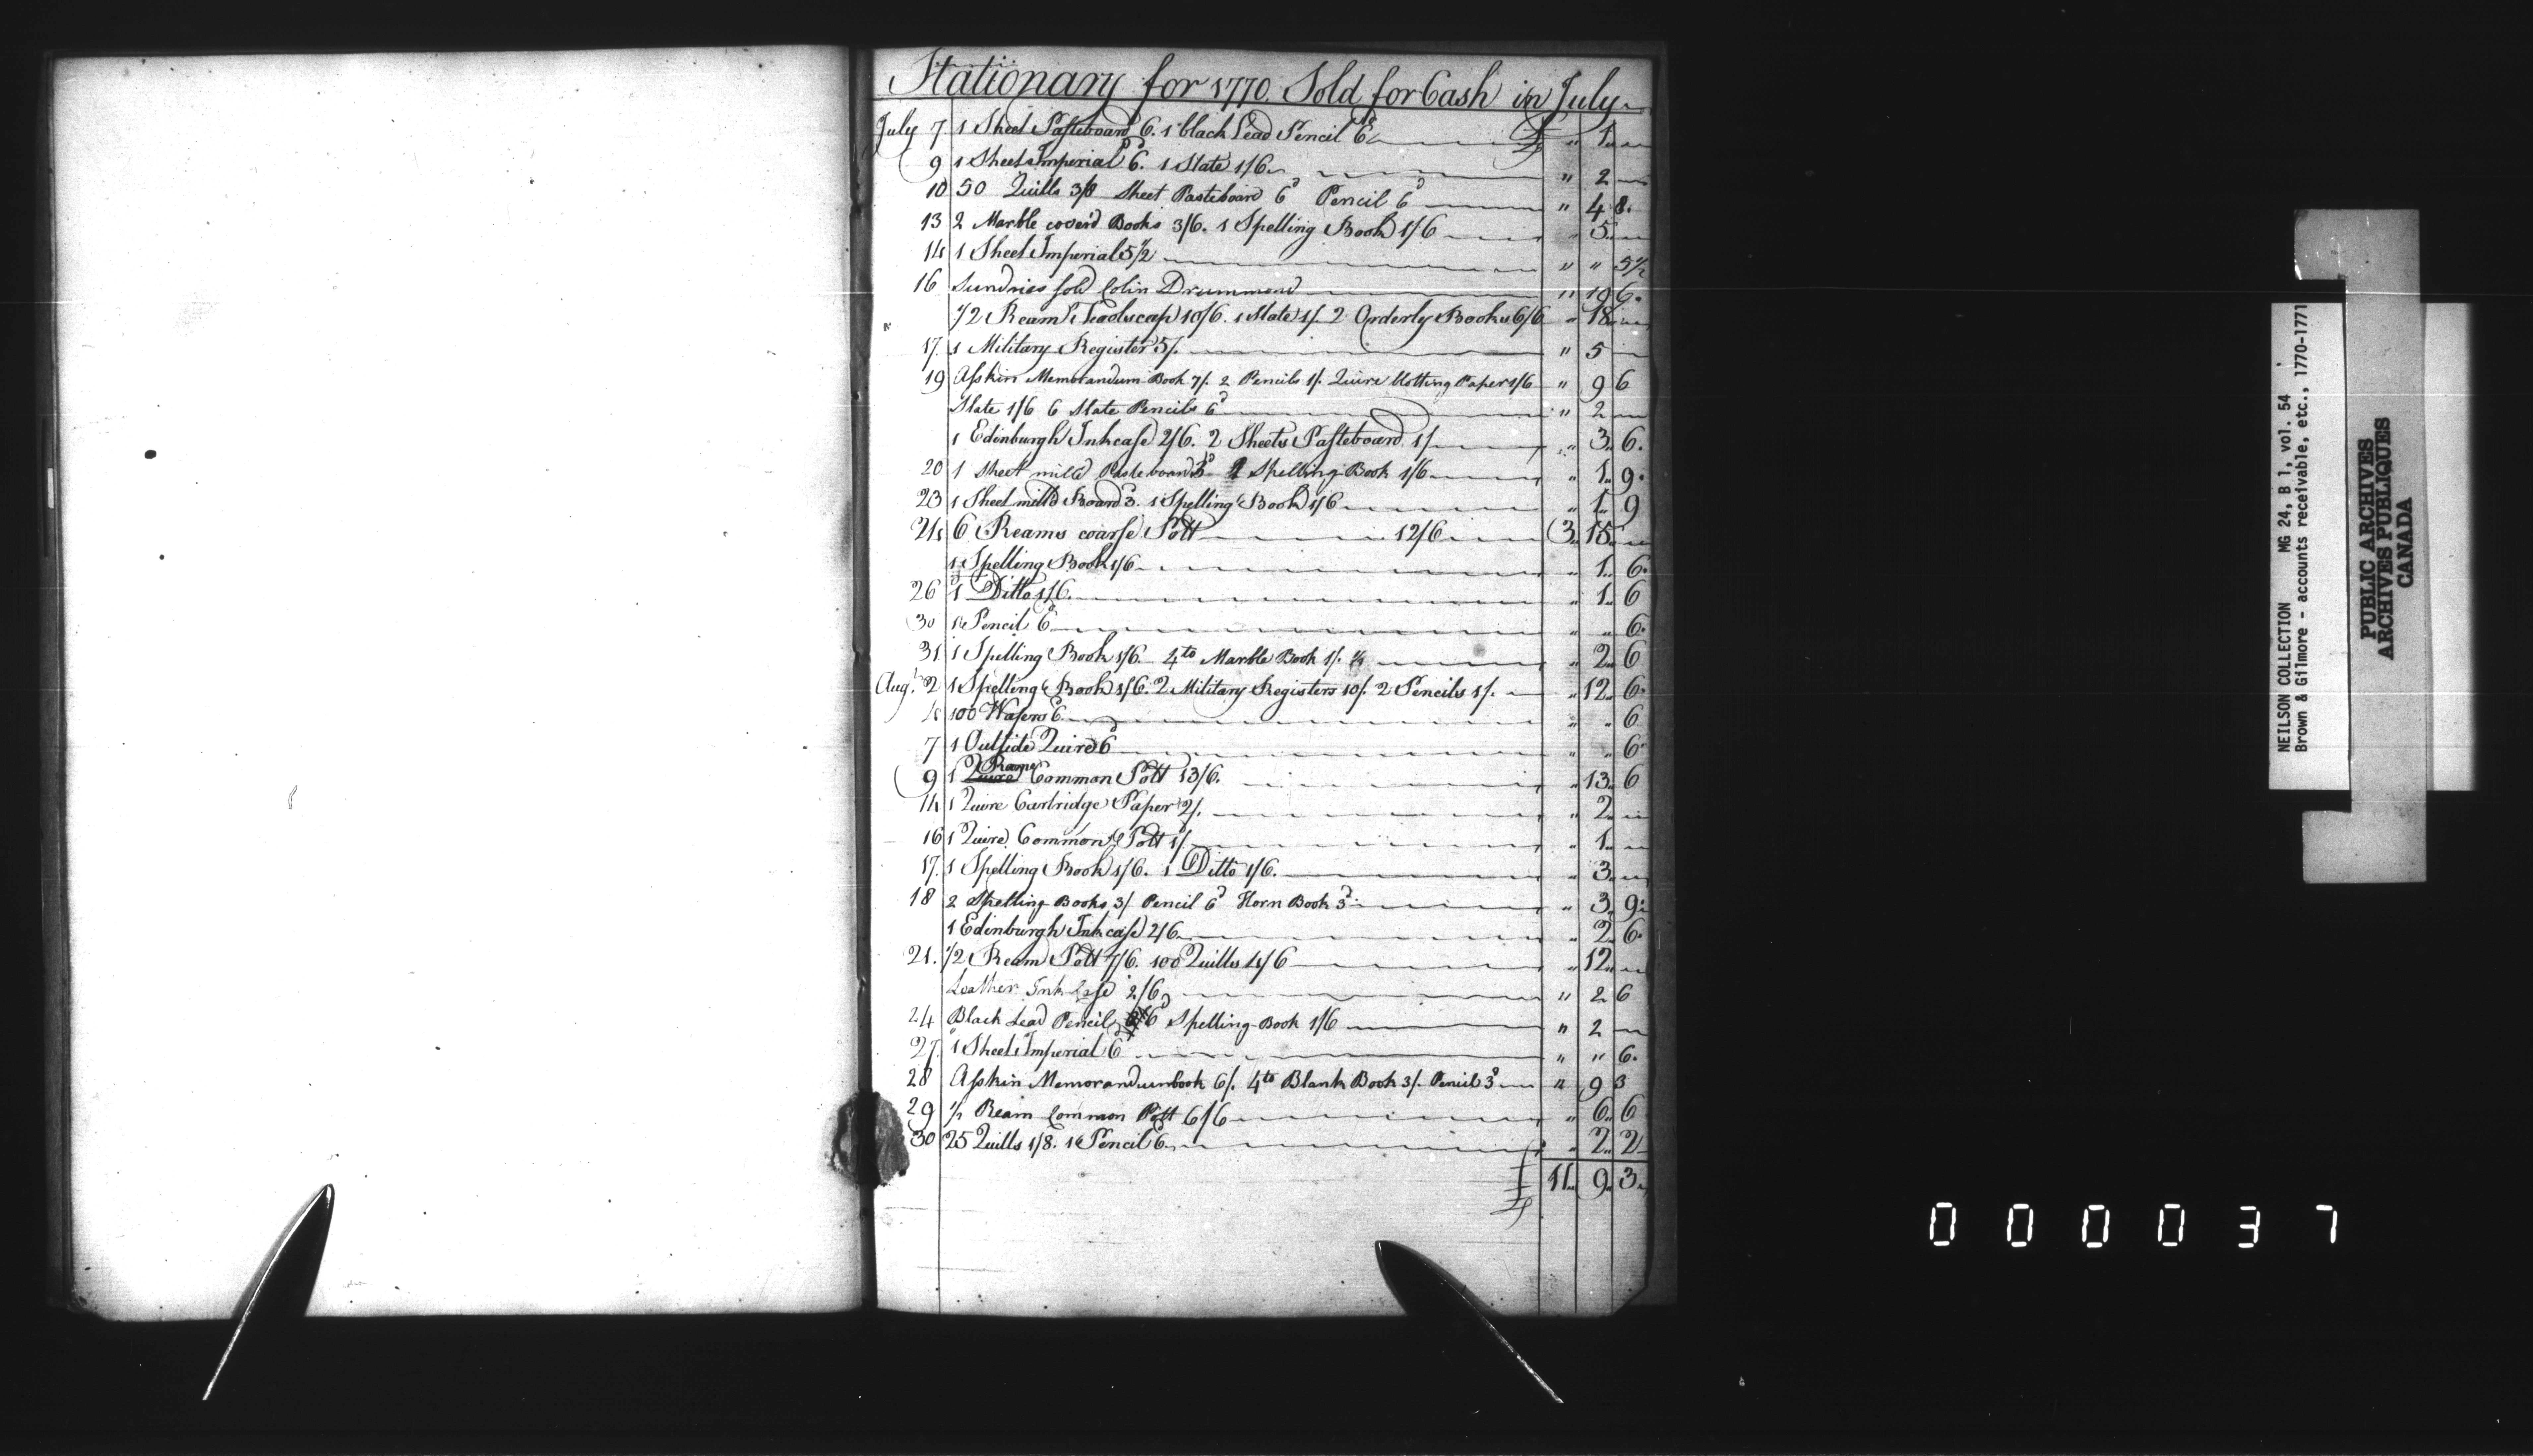 Stationary for 1770. Sold for Cash in July
July 7 1 Sheet Pasteboard 6. 1 black Lead Pencil 6 £ " 1 "
9 1 Sheet Imperial 6. 1 Slate 1/6 " 2 "
10 50 Quills 3/8 Sheet Pasteboard 6d Pencil 6d " 4 8.
13 2 Marble cover'd Books 3/6. 1 Spelling Book 1/6 " 5 "
14 1 Sheet Imperial 5 1/2 " " 5 1/2
16 Sundries sold Colin Drummond " 19 6.
1/2 Ream Foolscap 10/6. 1 Slate 1/. 2 Orderly Books 6/6 " 18 "
17. 1 Military Register 5/. " 5 "
19 Asskin Memorandum Book 7/. 2 Pencils 1/. Quire blotting Paper 1/6 " 9 6
Slate 1/6 6 Slate Pencils 6d " 2 "
1 Edinburgh Inkcase 2/6. 2 Sheets Pasteboard 1/ " 3 6.
20 1 Sheet mill'd Pasteboard 3d 1 Spelling Book 1/6 " 1 9.
23 1 Sheet mill'd Board 3. 1 Spelling Book 1/6 " 1 9
24 6 Reams coarse Pott 12/6 3 15 "
1 Spelling Book 1/6 " 1 6.
26 1 Ditto 1/6. " 1 6
30 1 Pencil 6 " " 6.
31 1 Spelling Book 1/6 4to Marble Book 1/. " 2 6
Augt. 2 1 Spelling Book 1/6. 2 Military Registers 10/. 2 Pencils 1/. " 12 6.
4 100 Wafers 6 " " 6
7 1 Outside Quire 6d " " 6.
9 1 Quire Ream Common Pott 13/6. " 13 6
14 1 Quire Cartridge Paper 2/. " 2 "
16 1 Quire Common Pott 1/ " 1 "
17. 1 Spelling Book 1/6. 1 Ditto 1/6. " 3 "
18 2 Spelling Books 3/ Pencil 6d Horn Book 3d " 3 9
1 Edinburgh Ink case 2/6 " 2 6.
21. 1/2 Ream Pott 7/6. 100 Quills 4/6 " 12 "
Leather Ink Case 2/6 " 2 6
24 Black Lead Pencil 6d Spelling Book 1/6 " 2 "
27. 1 Sheet Imperial 6 " " 6.
28 Asskin Memorandumbook 6/. 4to Blank Book 3/. Pencil 3d " 9 3
29 1/2 Ream Common Pott 6/6 " 6 6
30 25 Quills 1/8. 1 Pencil 6 " 2 2
£ 11 9 3
NEILSON COLLECTION MG 24, B 1, vol. 54
Brown & Gilmore - accounts receivable, etc., 1770-1771
PUBLIC ARCHIVES
ARCHIVES PUBLIQUES
CANADA
000037